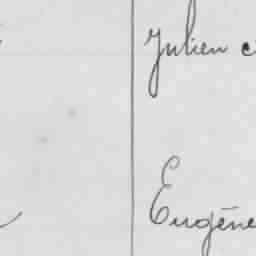 Julien
Eugène